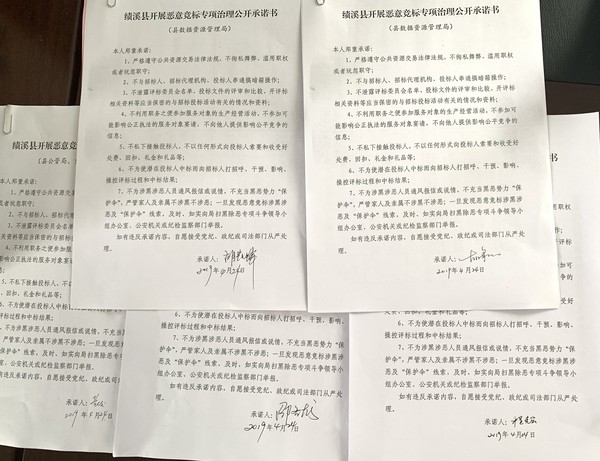 绩溪县开展恶意竞标专项治理公开承诺书
（县数据资源管理局）
本人郑重承诺：
1、严格遵守公共资源交易法律法规，不徇私舞弊、滥用职权
或者玩忽职守；
2、不与招标人、招标代理机构、投标人串通搞暗箱操作；
3、不泄露评标委员会名单、投标文件的评审和比较、开评标
相关资料等应当保密的与招标投标活动有关的情况和资料；
4、不利用职务之便参加服务对象的生产经营活动，不参加可
能影响公正执法的服务对象宴请，不向他人提供影响公平竞争的
信息；
5、不私下接触投标人，不以任何形式向投标人索要和收受好
处费、回扣、礼金和礼品等；
6、不为使潜在投标人中标而向招标人打招呼、干预、影响、
操控评标过程和中标结果；
7、不为涉黑涉恶人员通风报信或说情，不充当黑恶势力“保
护伞”，严管家人及亲属不涉黑不涉恶；一旦发现恶意竞标涉黑涉
恶及“保护伞”线索，及时、如实向局扫黑除恶专项斗争领导小
组办公室、公安机关或纪检监察部门举报。
如有违反承诺内容，自愿接受党纪、政纪或司法部门从严处
理。
承诺人：
2019年4月24日
绩溪县开展恶意竞标专项治理公开承诺书
（县数据资源管理局）
本人郑重承诺：
1、严格遵守公共资源交易法律法规，不徇私舞弊、滥用职权
或者玩忽职守；
2、不与招标人、招标代理机构、投标人串通搞暗箱操作；
3、不泄露评标委员会名单、投标文件的评审和比较、开评标
相关资料等应当保密的与招标投标活动有关的情况和资料；
4、不利用职务之便参加服务对象的生产经营活动，不参加可
能影响公正执法的服务对象宴请，不向他人提供影响公平竞争的
信息；
5、不私下接触投标人，不以任何形式向投标人索要和收受好
处费、回扣、礼金和礼品等；
6、不为使潜在投标人中标而向招标人打招呼、干预、影响、
操控评标过程和中标结果；
7、不为涉黑涉恶人员通风报信或说情，不充当黑恶势力“保
护伞”，严管家人及亲属不涉黑不涉恶；一旦发现恶意竞标涉黑涉
恶及“保护伞”线索，及时、如实向局扫黑除恶专项斗争领导小
组办公室、公安机关或纪检监察部门举报。
如有违反承诺内容，自愿接受党纪、政纪或司法部门从严处
理。
承诺人：
2019年4月24日
绩溪县开展恶意竞
（县公管局、
本人郑重承诺：
1、严格遵守公共资源
或者玩忽职守；
2、不与招标人、招标代
3、不泄露评标委员会名
相关资料等应当保密的与招
4、不利用职务之便参加
能影响公正执法的服务对象
信息；
5、不私下接触投标人，
处费、回扣、礼金和礼品等；
6、不为使潜在投标人中
操控评标过程和中标结果；
7、不为涉黑涉恶人员通
护伞”，严管家人及亲属不涉
恶及“保护伞”线索，及时
组办公室、公安机关或纪检
如有违反承诺内容，自
理。
承诺人：
6、不为使潜在投标人中标而向招标人打招呼、干预、影响、
操控评标过程和中标结果；
7、不为涉黑涉恶人员通风报信或说情，不充当黑恶势力“保
护伞”，严管家人及亲属不涉黑不涉恶；一旦发现恶意竞标涉黑涉
恶及“保护伞”线索，及时、如实向局扫黑除恶专项斗争领导小
组办公室、公安机关或纪检监察部门举报。
如有违反承诺内容，自愿接受党纪、政纪或司法部门从严处
理。
承诺人：
2019年4月24日
诺书
6、不为使潜在投标人中标而向招标人打招呼、干预、影响、
操控评标过程和中标结果；
7、不为涉黑涉恶人员通风报信或说情，不充当黑恶势力“保
护伞”，严管家人及亲属不涉黑不涉恶；一旦发现恶意竞标涉黑涉
恶及“保护伞”线索，及时、如实向局扫黑除恶专项斗争领导小
组办公室、公安机关或纪检监察部门举报。
如有违反承诺内容，自愿接受党纪、政纪或司法部门从严处
理。
承诺人：
2019年4月24日